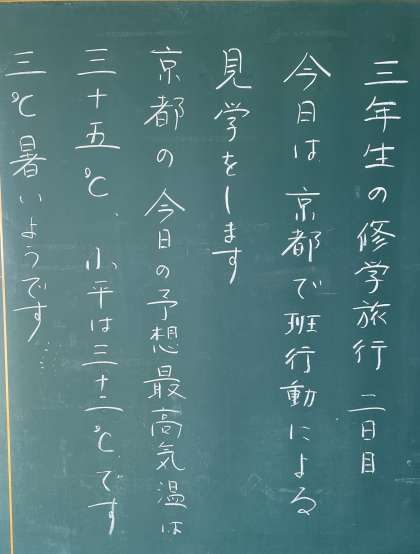 三年生の修学旅行 二日目
今日は京都で班行動による
見学をします
京都の今日の予想最高気温は
三十五℃、小平は三十二℃です
三℃暑いようです